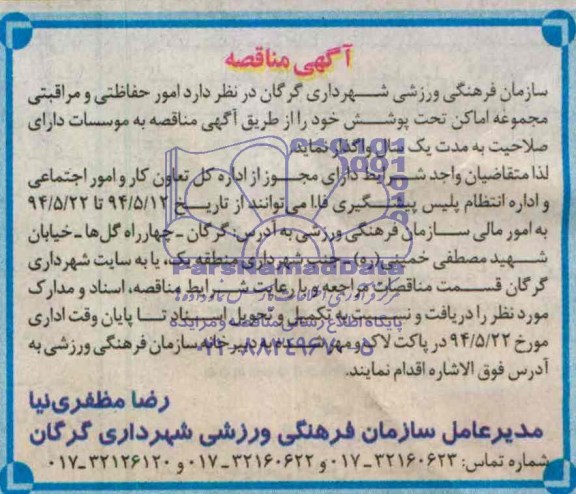 آگهی مناقصه
سازمان فرهنگی ورزشی شهرداری گرگان در نظر دارد امور حفاظتی و مراقبتی
مجموعه اماکن تحت پوشش خود را از طریق آگهی مناقصه به موسسات دارای
صلاحیت به مدت یک سال واگذار نماید.
لذا متقاضیان واجد شرایط دارای مجوز از اداره کل تعاون کار و امور اجتماعی
و اداره انتظام پلیس پیشگیری فاا می‌توانند از تاریخ ۹۴/۵/۱۲ تا ۹۴/۵/۲۲
به امور مالی سازمان فرهنگی ورزشی به آدرس: گرگان ـ چهارراه گل‌ها ـ خیابان
شهید مصطفی خمینی(ره) ـ جنب شهرداری منطقه یک، یا به سایت شهرداری
گرگان قسمت مناقصات مراجعه و با رعایت شرایط مناقصه، اسناد و مدارک
مورد نظر را دریافت و نسبت به تکمیل و تحویل اسناد تا پایان وقت اداری
مورخ ۹۴/۵/۲۲ در پاکت لاک و مهر شده به دبیرخانه سازمان فرهنگی ورزشی به
آدرس فوق الاشاره اقدام نمایند.
رضا مظفری‌نیا
مدیرعامل سازمان فرهنگی ورزشی شهرداری گرگان
شماره تماس: ۳۲۱۶۰۶۲۳ـ۰۱۷ و ۳۲۱۶۰۶۲۲ـ۰۱۷ و ۳۲۱۲۶۱۲۰ـ۰۱۷
ParsNamadData
پایگاه اطلاع رسانی مناقصه و مزایده